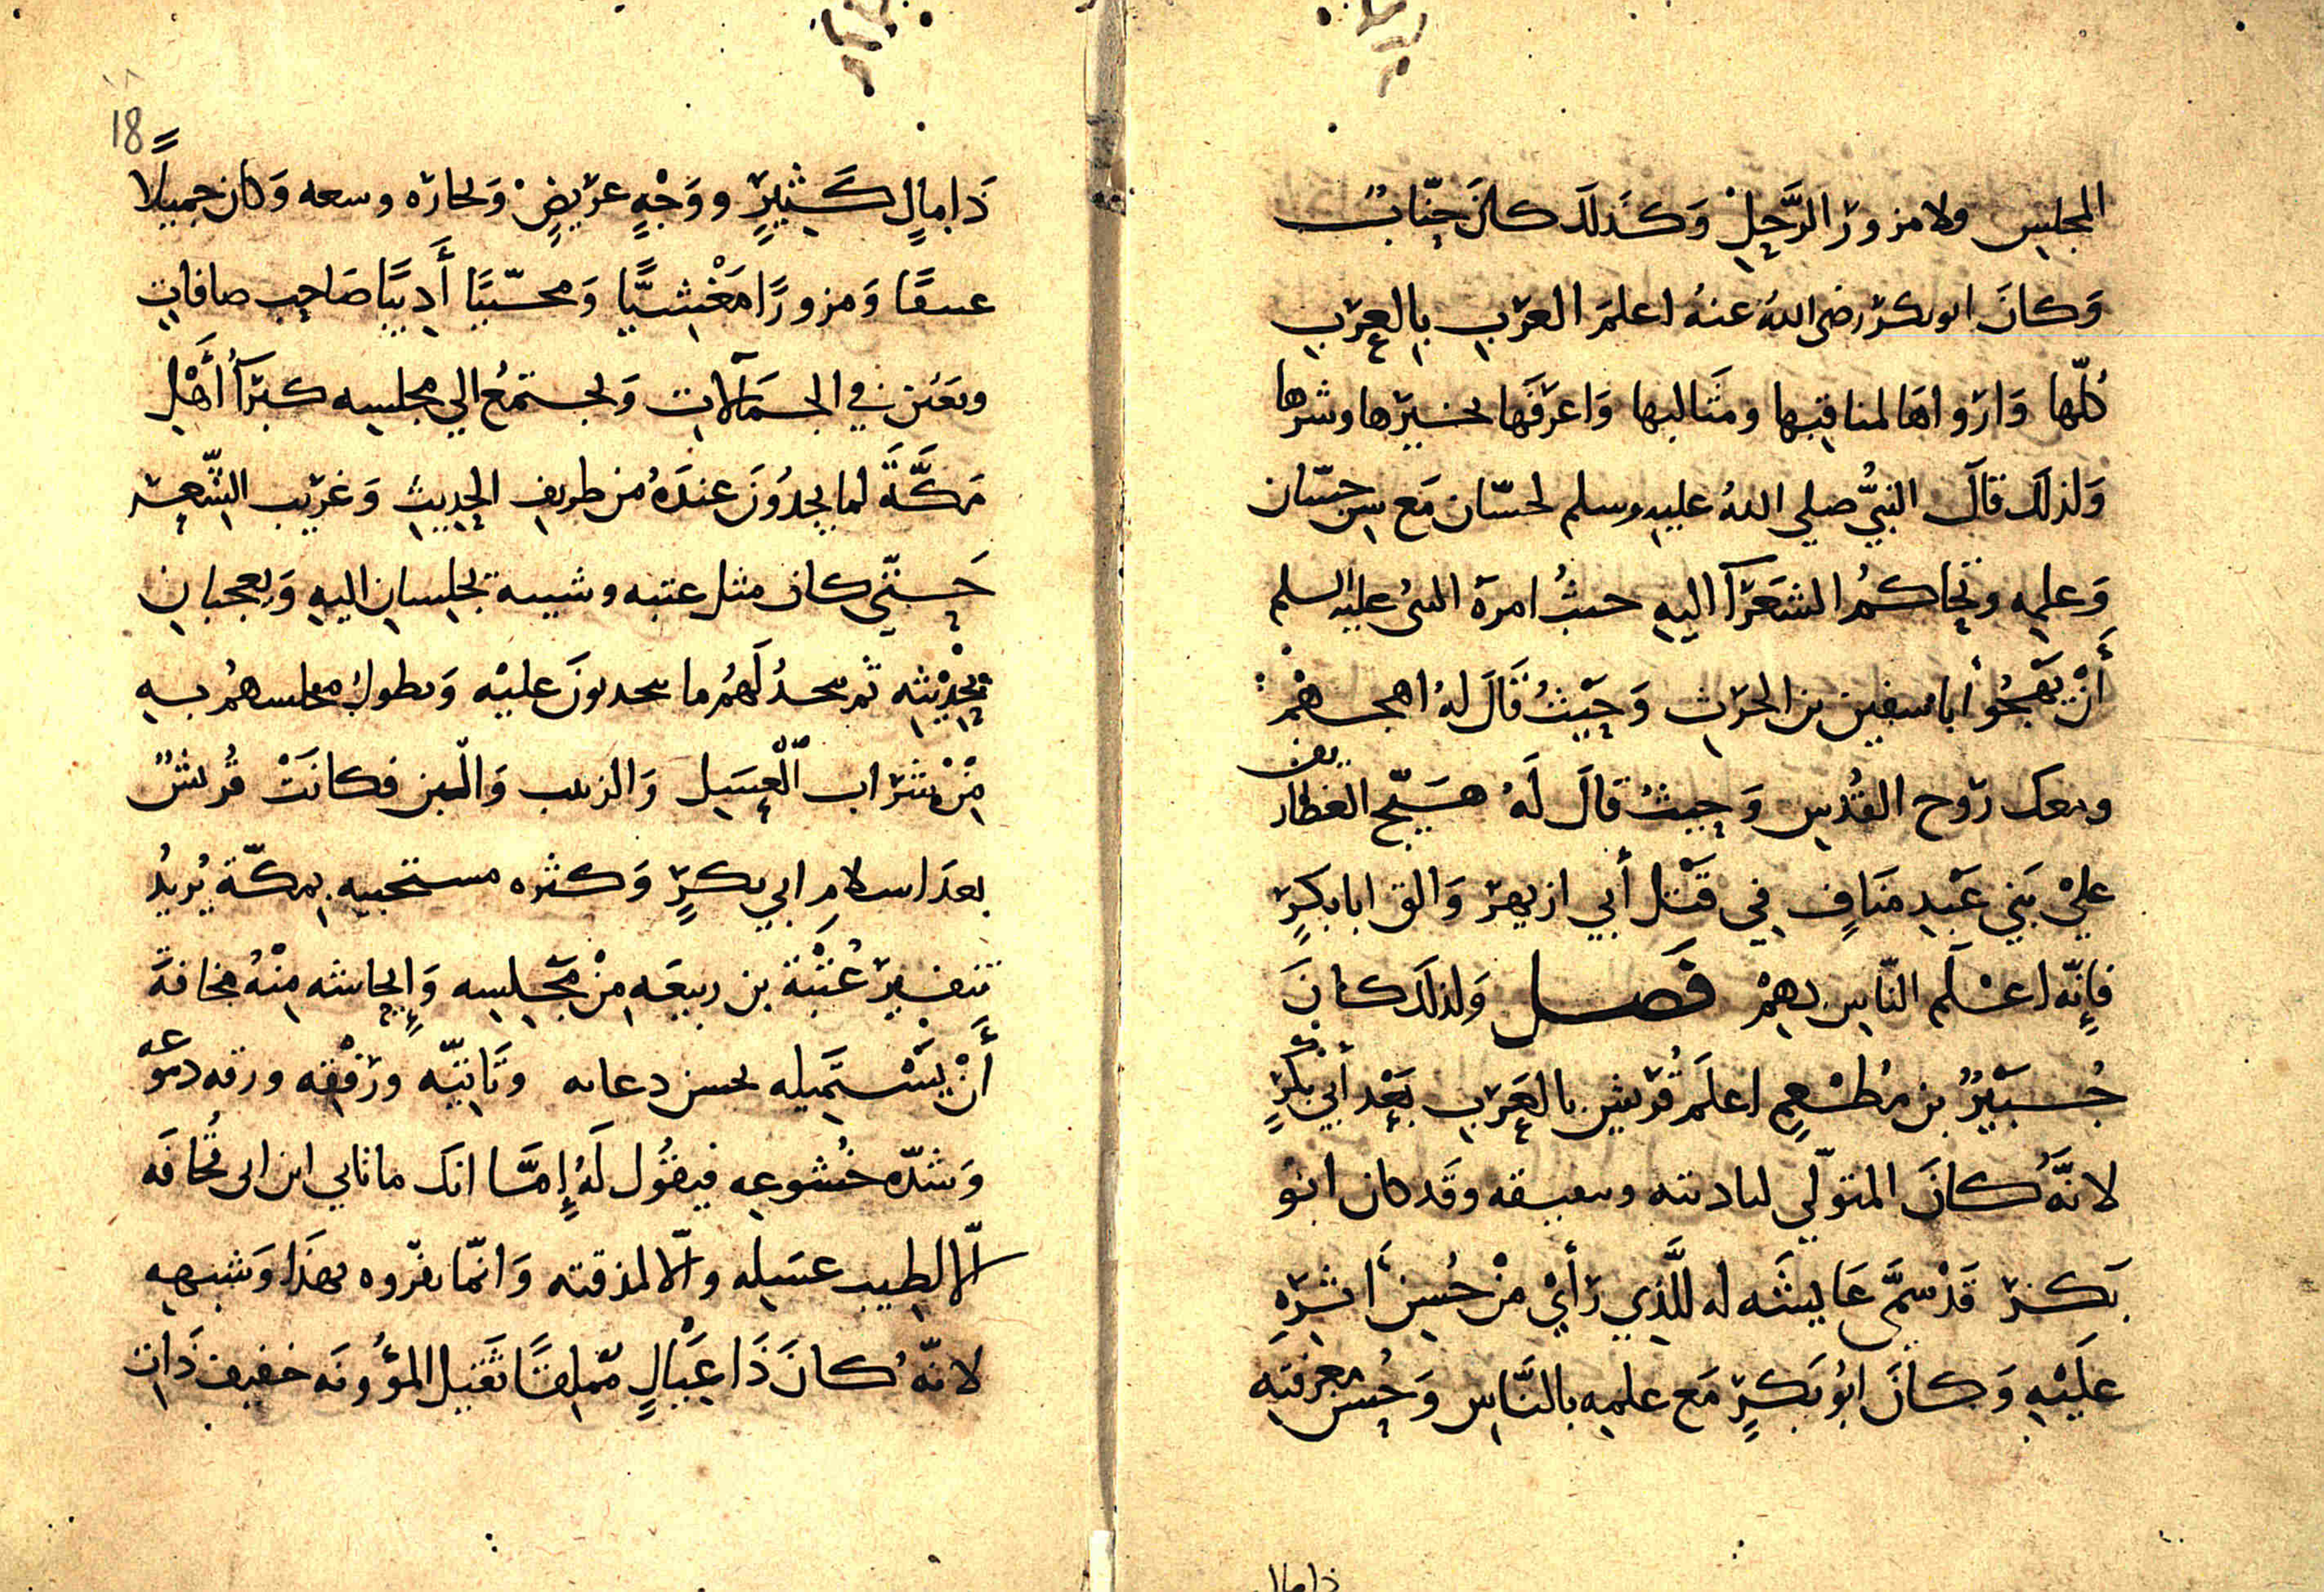 المجلس ولا مزور الرَّحِل وَكذلك كان خبّاب
وَكانَ ابو بكر رضى اللهُ عنهُ اعلمَ العرب بالعرب
كلّها وَارواهَا لمناقبها ومثَالبها وَاعرَفَها بخيرها وشرها
وَلذلك قالَ النبيُّ صلي اللهُ عليه وسلم لحسّان مَع سن حسّان
وَعلمه وتحاكمُ الشعرَآ اليه حيثُ امرهَ النبىُ عليه السلم
أَنْ يَهجُو أبا سفين بن الحرث وَحَيْثُ قَالَ لهُ اهجهمْ
ومعك روح القُدس وَحيثُ قالَ لَهُ هَيّج الغطاريف
عليْ بَني عَبْدِ مَنَافٍ فِي قَتْل أبي ازيهر وَالق ابا بكرٍ
فإنّه اعْلَم النّاس بهمْ فَصل وَلذلكَ كانَ
جُبَيْرُ بن مُطْعِمٍ اعلَم قُرَيْشٍ بالعَرَب بَعْد أبي بَكْرٍ
لانَّهُ كانَ المتوّلي لتاديبه وتثقيفه وقَد كان ابو
بَكر قَدْ سمَّى عَايشَه له للَّذِي رَأيْ مْنْ حُسن أَثَرِه
عَلَيْهِ وَكانَ ابُو بَكرٍ مَع علمه بالنَّاس وَحُسن معرفته
ذا مال
18
ذَا مالٍ كَثيرٍ ووَجْهٍ عريضٍ وَتجارَه وسعه وَكان جميلًا
عتيقًا وَمزورًا مَغْشيًّا وَمحبّبًا أَديبًا صَاحِب ضافات
ويَعْتن في الحَمَالات وَيجتمَعُ الي مجلسه كبرَآ أَهْل
مَكَّةَ لما يجدُونَ عندَهُ من طريف الحديث وَغَريب الشّعر
حَتّي كان مثل عتبه وشيبة يجلسان اليه وَيعجبان
بحَديْثه ثم يجدُ لَهُم ما يحمدونَ عليْه وَيطول مجلسهُم بسبه
مِنْ شَرَاب الْعسَل وَالزبيب وَاللّبن فكانَتْ قُريشٌ
بعدَ اسلامِ ابي بكرٍ وَكثره مستحبيه بمكّة يُريدُ
تنفير عُتْبَة بن ربيعَه مِنْ مَجْلسِه وَإيحاشه مِنْهُ مخافَةَ
أَنْ يَسْتَميله بحسن دعائه وتَانيّه ورَفْقِه ورقه دموعه
وَشدّه خُشوعِه فيقُول لَهُ إِمّا انك ما تاتي ابن ابى قُحافَه
الّا لطيب عسَله والّا لمذقته وَانمّا نفّروه بهَذا وَشبهه
لانّهُ كانَ ذَا عيَالٍ مملقًا ثَقيل المؤُونَه خفيف ذَات